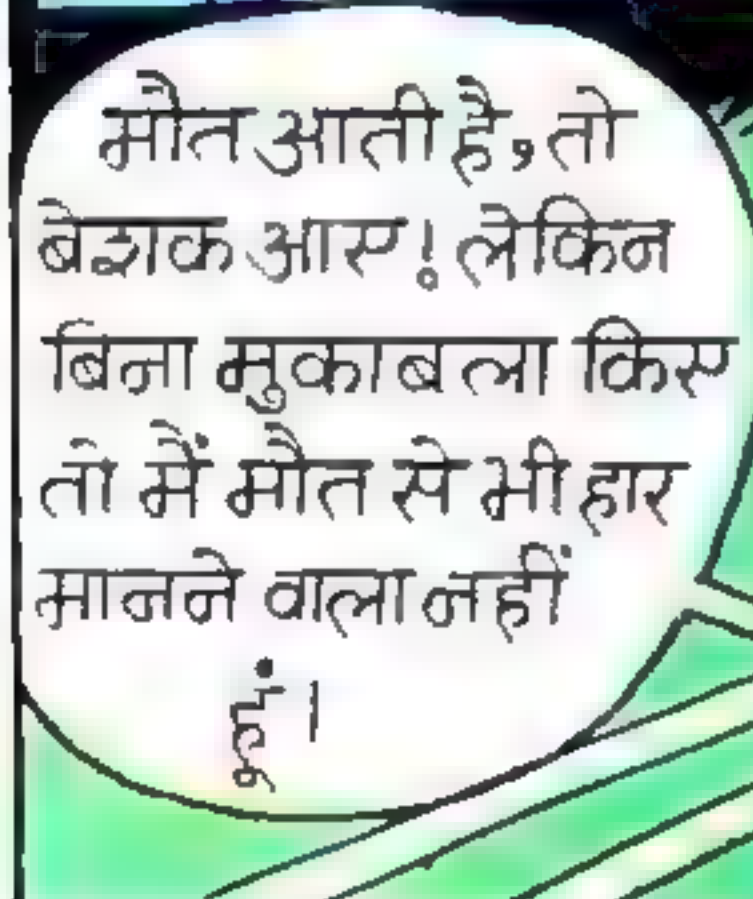 मौत आती है, तो
बेशक आए! लेकिन
बिना मुकाबला किए
तो मैं मौत से भी हार
मानने वाला नहीं
हूं।